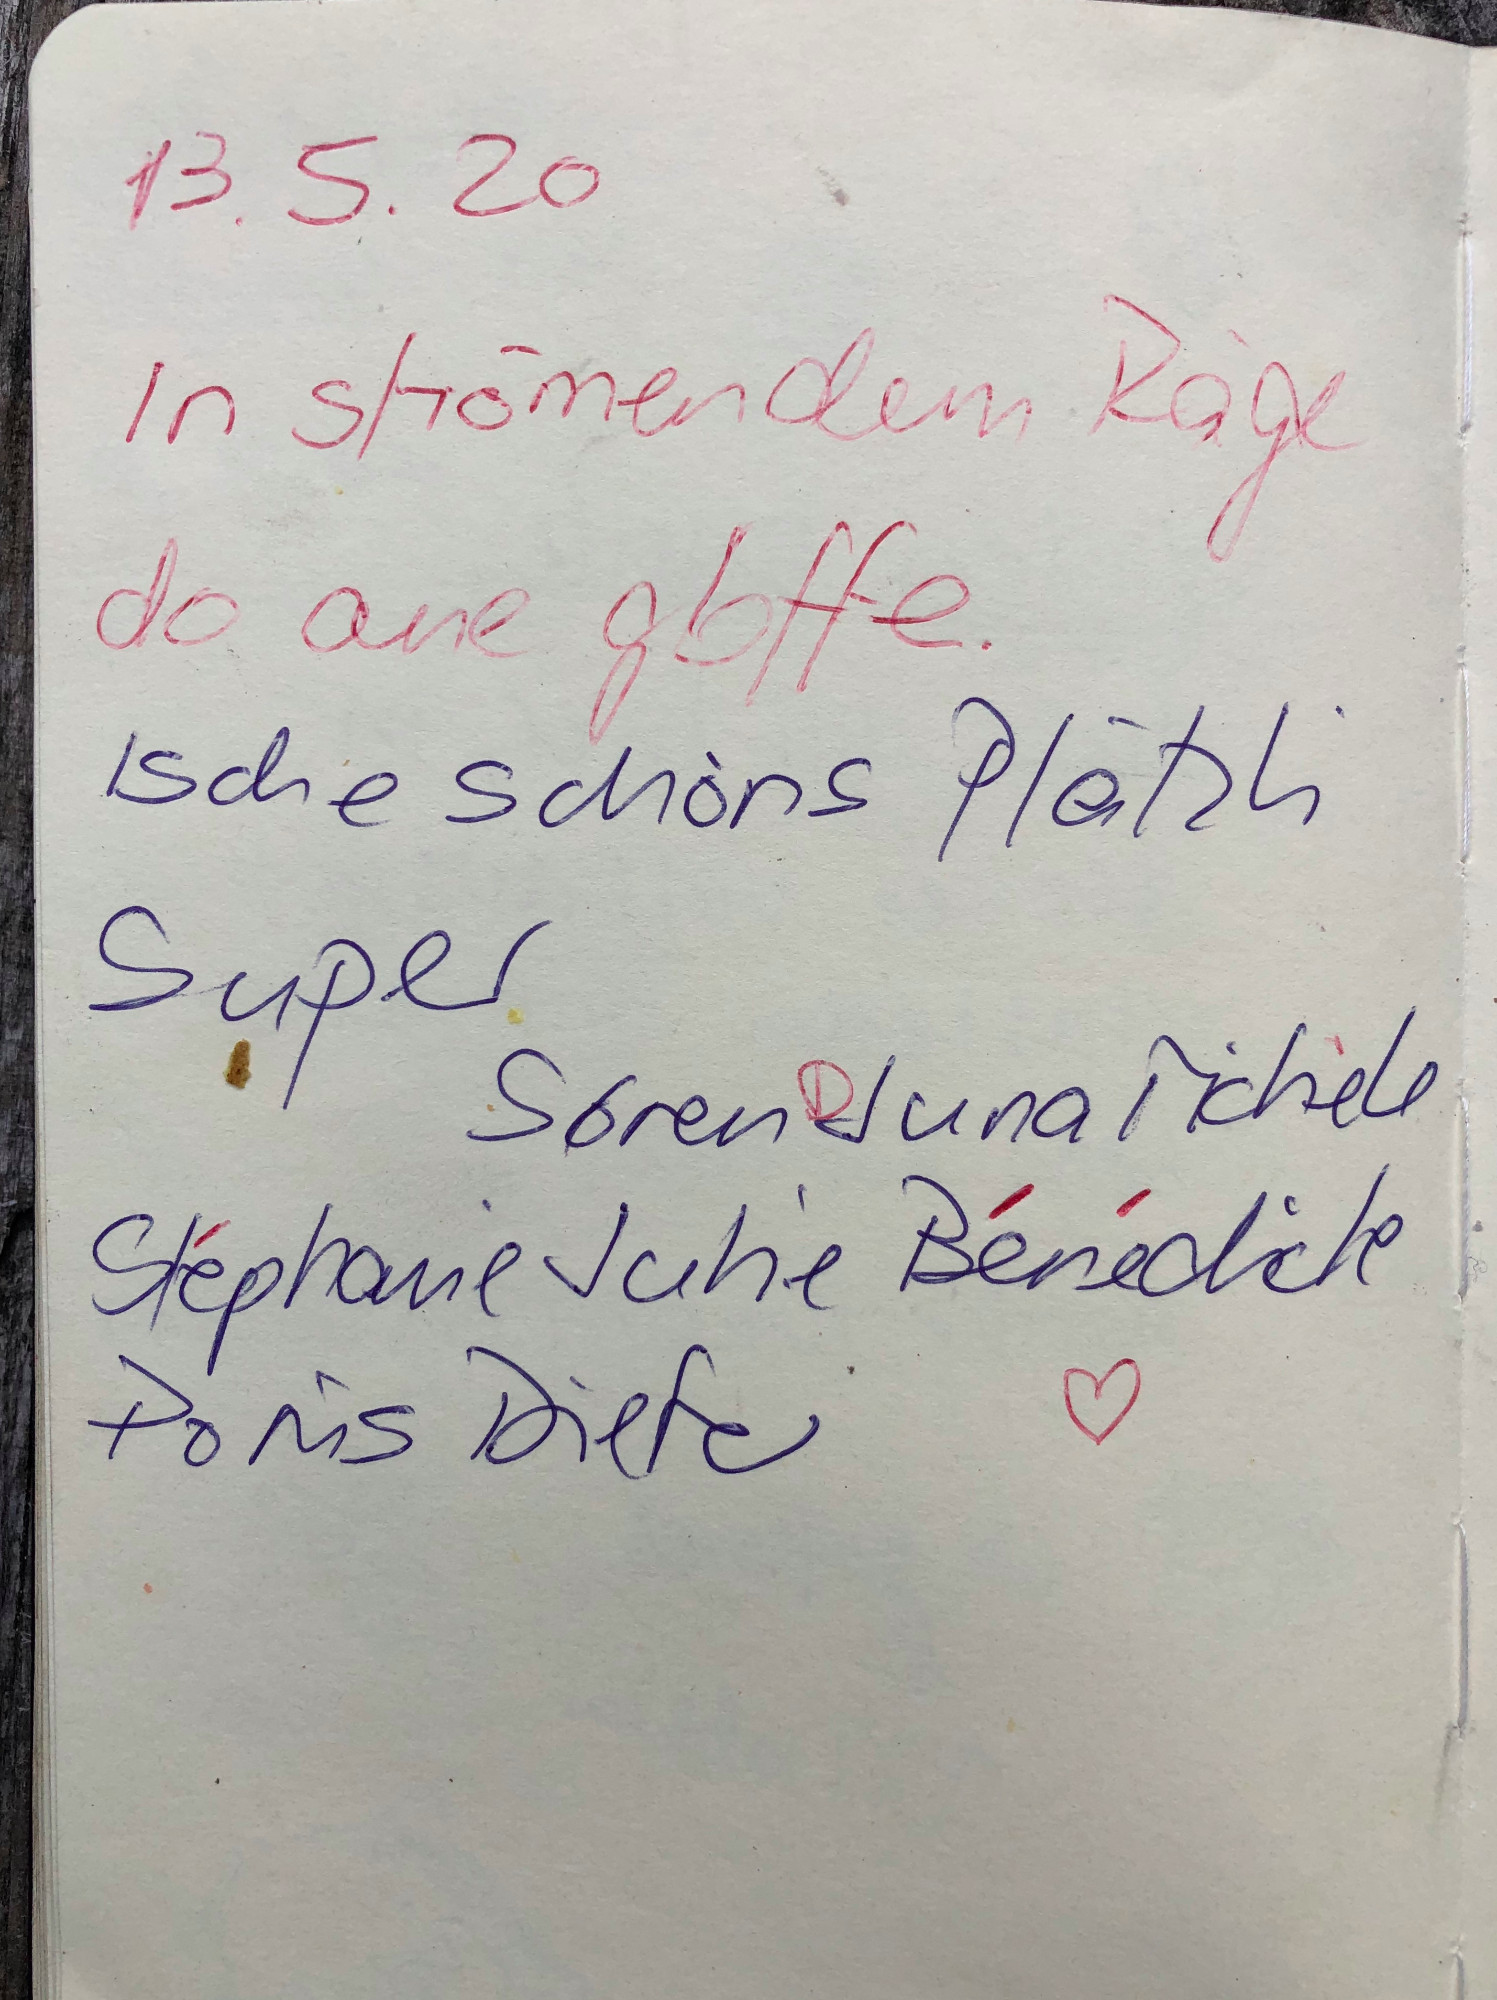 13.5.20
In strömendem Räge
do ane gloffe.
Isch e schöns Plätzli
Super
Sören Luna Michele
Stéphanie Julie Bénédicte
Doris Dieter